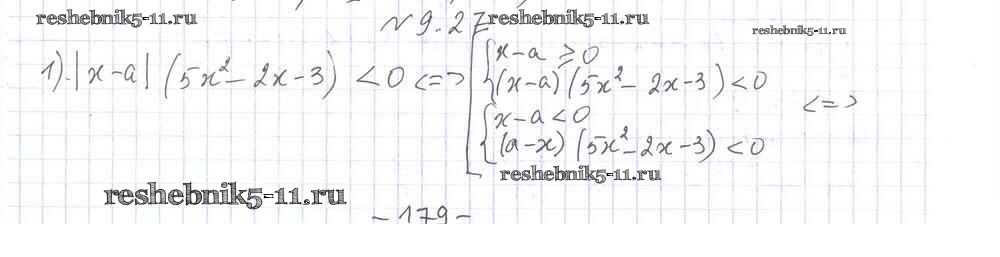 reshebnik5-11.ru
№ 9.27
reshebnik5-11.ru
reshebnik5-11.ru
1).|x-a| (5x²-2x-3) <0 <=> [ { x-a ≥ 0
(x-a) (5x²-2x-3) <0
{ x-a <0
(a-x) (5x²-2x-3) <0 <=>
reshebnik5-11.ru
reshebnik5-11.ru
-179-